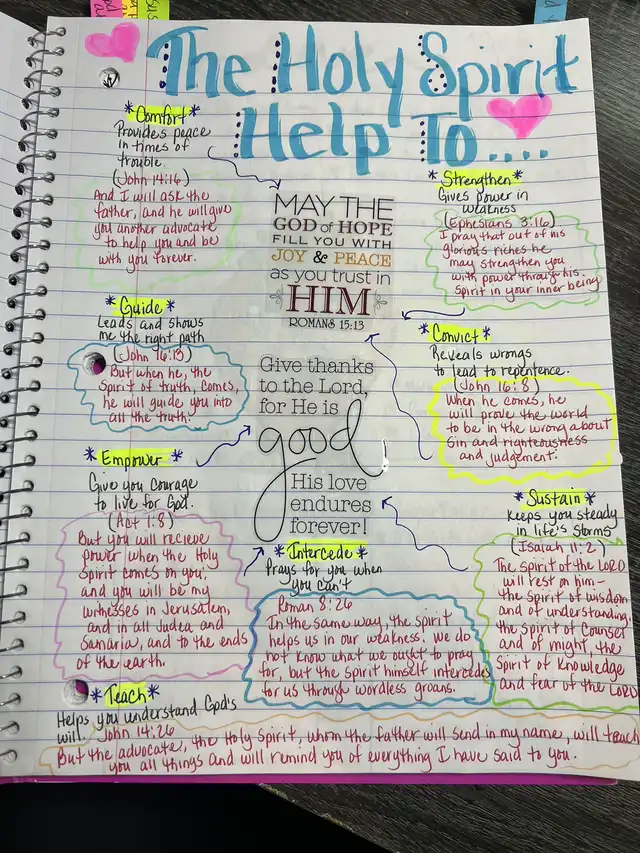 The Holy Spirit
Help To....
*Comfort*
Provides peace
in times of
trouble.
(John 14:16)
And I will ask the
father, and he will give
you another advocate
to help you and be
with you forever.
*Guide*
Leads and shows
me the right path
(John 16:13)
But when he, the
Spirit of truth, comes,
he will guide you into
all the truth.
*Empower*
Give you courage
to live for God.
(Act 1:8)
But you will recieve
power when the Holy
Spirit comes on you;
and you will be my
witnesses in Jerusalem,
and in all Judea and
Samaria, and to the ends
of the earth.
MAY THE
GOD of HOPE
FILL YOU WITH
JOY & PEACE
as you trust in
HIM
ROMANS 15:13
Give thanks
to the Lord,
for He is
good
His love
endures
forever!
*Intercede*
Prays for you when
you can't
Roman 8:26
In the same way, the spirit
helps us in our weakness. We do
not know what we ought to pray
for, but the spirit himself intercedes
for us through wordless groans.
*Strengthen*
Gives power in
weakness
(Ephesians 3:16)
I pray that out of his
glorious riches he
may strengthen you
with power through his
Spirit in your inner being
*Convict*
Reveals wrongs
to lead to repentence.
(John 16:8)
When he comes, he
will prove the world
to be in the wrong about
sin and righteousness
and judgement:
*Sustain*
Keeps you steady
in life's storms
(Isaiah 11:2)
The spirit of the LORD
will rest on him-
the Spirit of wisdom
and of understanding,
the Spirit of Counsel
and of might, the
Spirit of Knowledge
and fear of the LORD
*Teach*
Helps you understand God's
will. John 14:26
But the advocate, the Holy Spirit, whom the father will send in my name, will teach
you all things and will remind you of everything I have said to you.